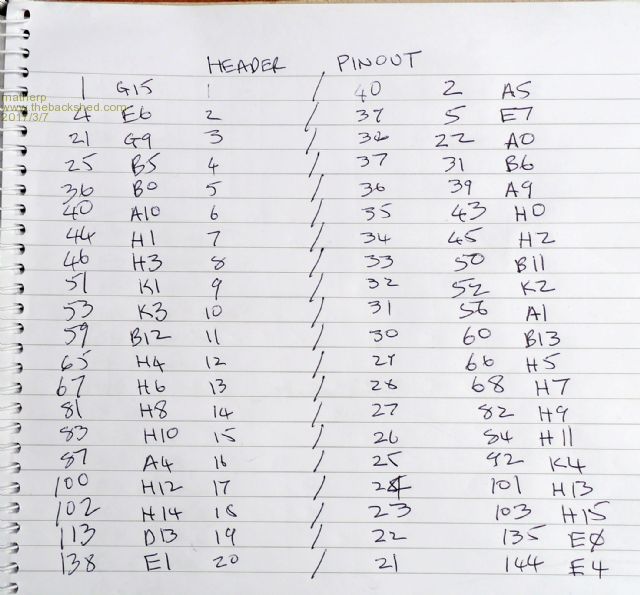 HEADER / PINOUT
1 G15 1 / 40 2 A5
matherp
www.thebackshed.com
4 E6 2 / 39 5 E7
2017/3/7
21 G9 3 / 38 22 A0
25 B5 4 / 37 31 B6
36 B0 5 / 36 39 A9
40 A10 6 / 35 43 H0
44 H1 7 / 34 45 H2
46 H3 8 / 33 50 B11
51 K1 9 / 32 52 K2
53 K3 10 / 31 56 A1
59 B12 11 / 30 60 B13
65 H4 12 / 29 66 H5
67 H6 13 / 28 68 H7
81 H8 14 / 27 82 H9
83 H10 15 / 26 84 H11
87 A4 16 / 25 92 K4
100 H12 17 / 24 101 H13
102 H14 18 / 23 103 H15
113 D13 19 / 22 135 E0
138 E1 20 / 21 144 E4